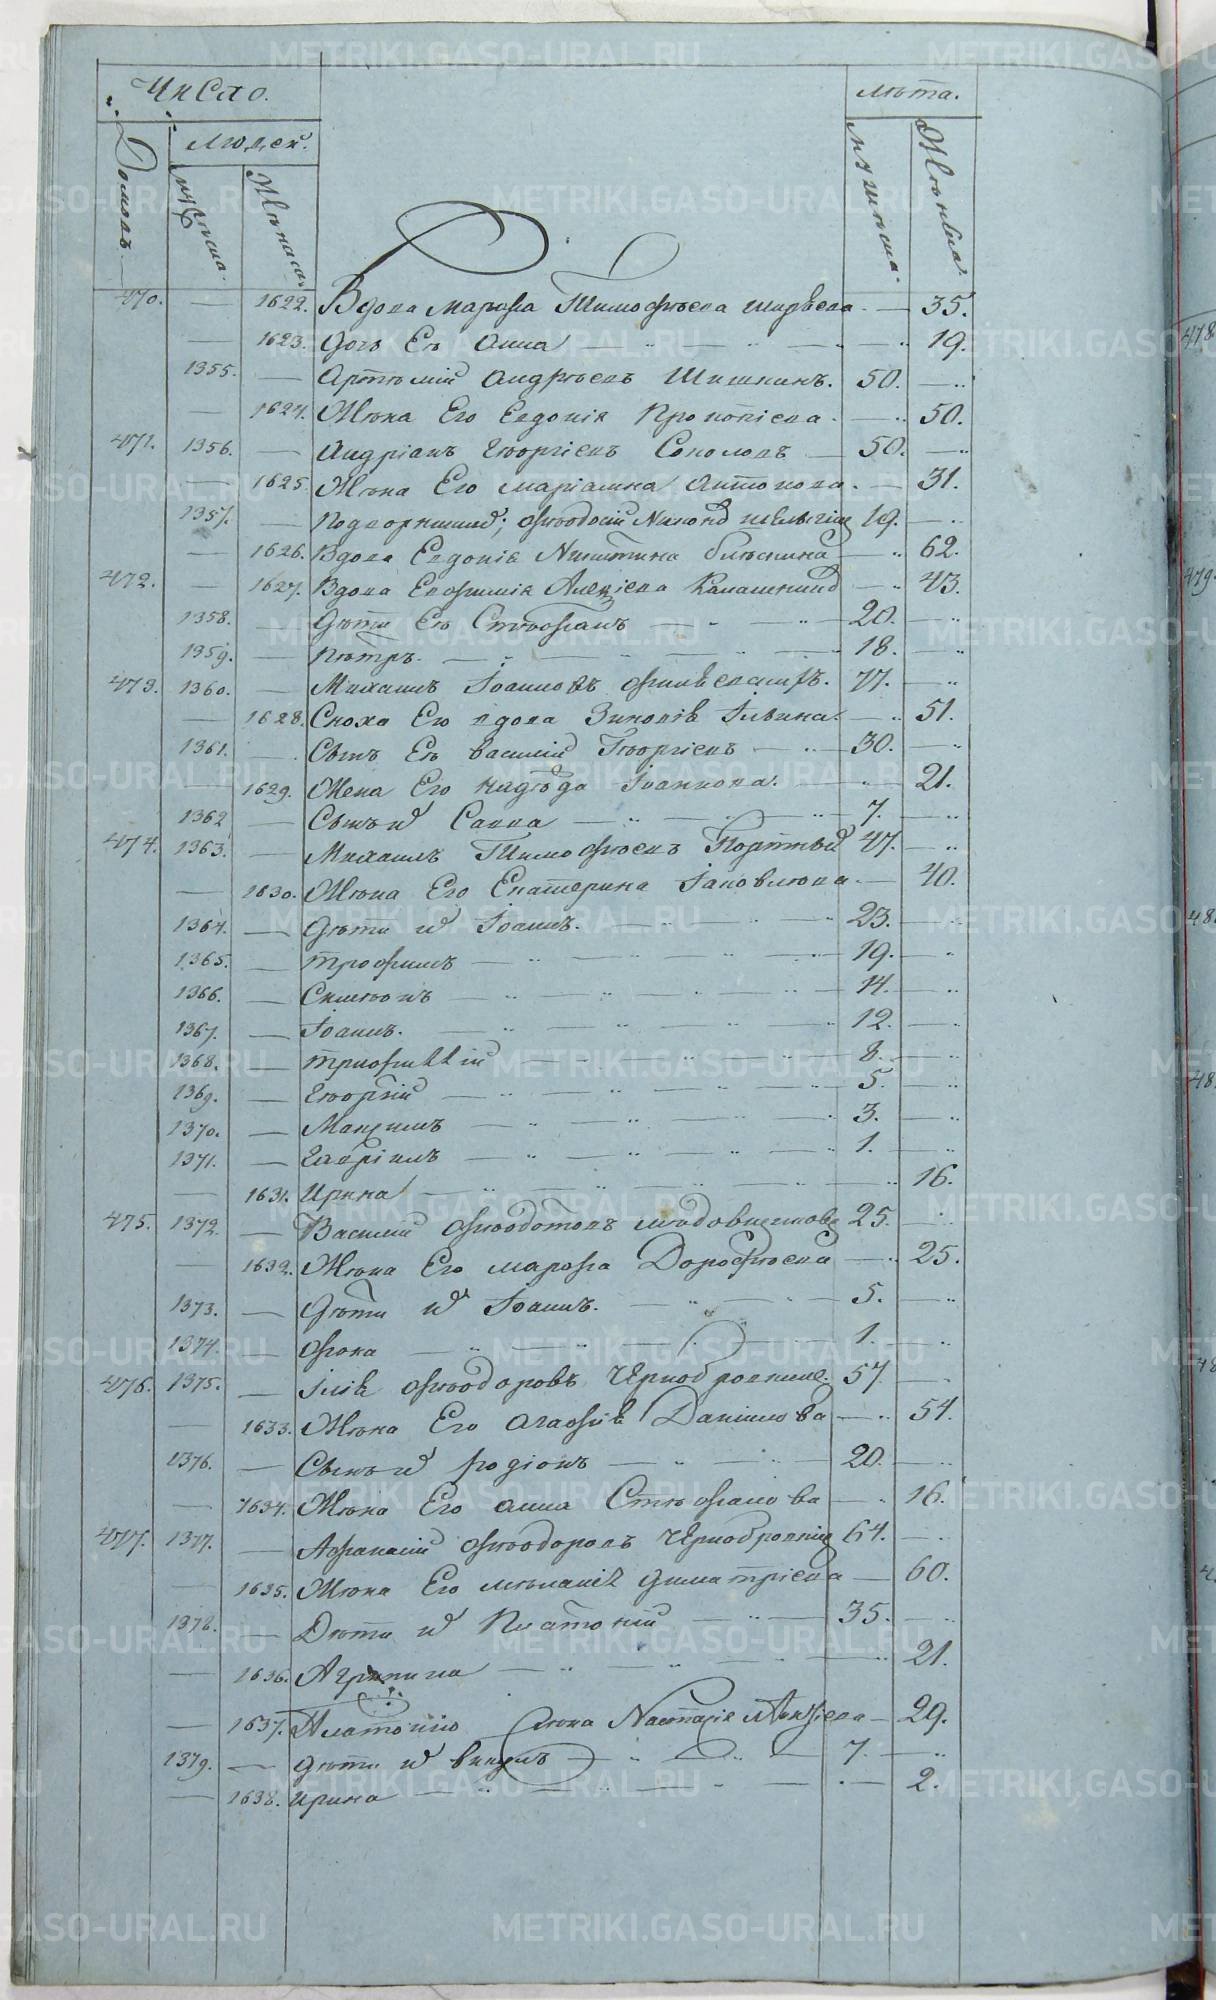 Число.
Лѣта.
Домовъ.
Людей.
мужеска.
Женска.
мужеска.
Женска.
470. — 1622. Вдова Марѳа Тимоѳѣева — 35.
— 1623. Дочь Ея Анна — 19.
1355. — Артемій Андреевъ Шишкинъ. 50. —
— 1624. Жена Его Евдокія Прокопіева. — 50.
471. 1356. — Андріанъ Георгіевъ Соколовъ — 50. —
— 1625. Жена Его Маріамна Антонова. — 31.
1357. — 19. —
— 1626. Вдова Евдокія Никитина — 62.
472. — 1627. Вдова Евфимія Алексіева — 43.
1358. — Дѣти Ея Стефанъ — 20. —
1359. — Петръ. — 18. —
473. 1360. — Михаилъ Іоанновъ 77. —
— 1628. Сноха Его вдова Зиновія Ильина. — 51.
1361. Сынъ Ея Василій Георгіевъ — 30. —
— 1629. Жена Его Надежда Іоаннова. — 21.
1362 — Сынъ и Савва — 7. —
474. 1363. — Михаилъ Тимофеевъ Портный 47. —
— 1630. Жена Его Екатерина Іаковлева — 40.
1364. — Дети и Іоаннъ. — 23. —
1365. — Трофимъ — 19. —
1366. — Симеонъ — 14. —
1367. — Іоаннъ. — 12. —
1368. — 8. —
1369. — Георгій — 5. —
1370. — Максимъ — 3. —
1371. — Гавріилъ — 1. —
— 1631. Ирина — 16.
475. 1372. — Василій Феодотовъ 25. —
— 1632. Жена Его Марфа Дорофеева — 25.
1373. — Дети и Іоаннъ. — 5. —
1374. — Фока — 1. —
476. 1375. — Ілія Феодоровъ 57. —
— 1633. Жена Его Агафія Даніилова — 54.
1376. — Сынъ и Родіонъ — 20. —
— 1634. Жена Его Анна Стефанова — 16.
477. 1377. — Афанасій Феодоровъ 64. —
— 1635. Жена Его Меланія Димитріева — 60.
1378. — Дети и Платоній — 35. —
— 1636. Агрипина — 21.
— 1637. Платонію Жена Настасія Алексіева — 29.
1379. — Дети и — 7. —
— 1638. Ирина — 2.
METRIKI.GASO-URAL.RU